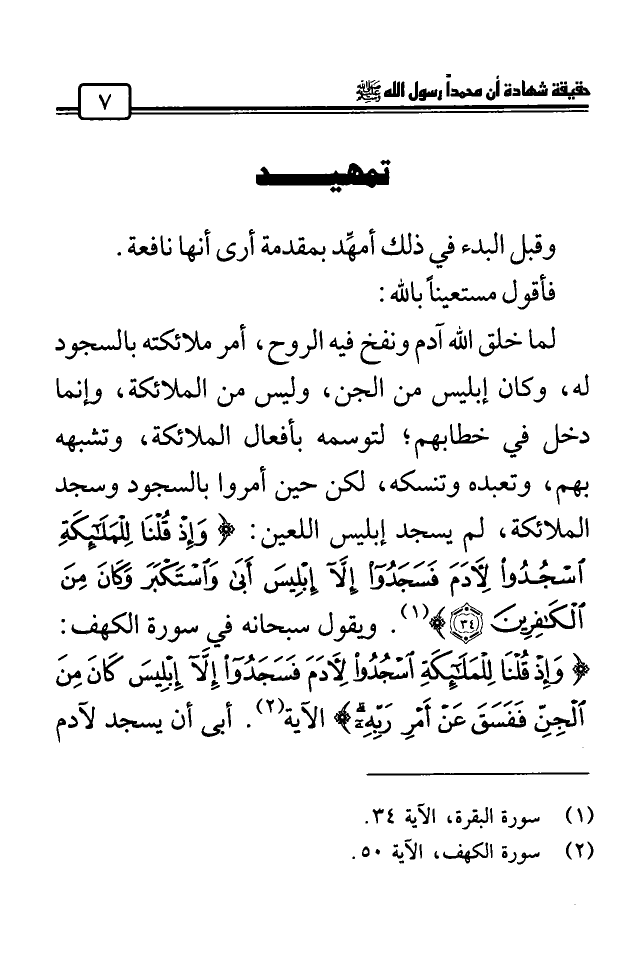 حقيقة شهادة أن محمداً رسول الله ﷺ
٧
تمهيـــد
وقبل البدء في ذلك أمهِّد بمقدمة أرى أنها نافعة .
فأقول مستعيناً بالله :
لما خلق الله آدم ونفخ فيه الروح، أمر ملائكته بالسجود
له، وكان إبليس من الجن، وليس من الملائكة، وإنما
دخل في خطابهم؛ لتوسمه بأفعال الملائكة، وتشبهه
بهم، وتعبده وتنسكه، لكن حين أمروا بالسجود وسجد
الملائكة، لم يسجد إبليس اللعين: ﴿ وَإِذْ قُلْنَا لِلْمَلَٰٓئِكَةِ
ٱسْجُدُوا۟ لِءَادَمَ فَسَجَدُوٓا۟ إِلَّآ إِبْلِيسَ أَبَىٰ وَٱسْتَكْبَرَ وَكَانَ مِنَ
ٱلْكَٰفِرِينَ ٣٤ ﴾(١). ويقول سبحانه في سورة الكهف:
﴿ وَإِذْ قُلْنَا لِلْمَلَٰٓئِكَةِ ٱسْجُدُوا۟ لِءَادَمَ فَسَجَدُوٓا۟ إِلَّآ إِبْلِيسَ كَانَ مِنَ
ٱلْجِنِّ فَفَسَقَ عَنْ أَمْرِ رَبِّهِۦٓ ﴾ الآية(٢). أبى أن يسجد لآدم
(١) سورة البقرة، الآية ٣٤.
(٢) سورة الكهف، الآية ٥٠.